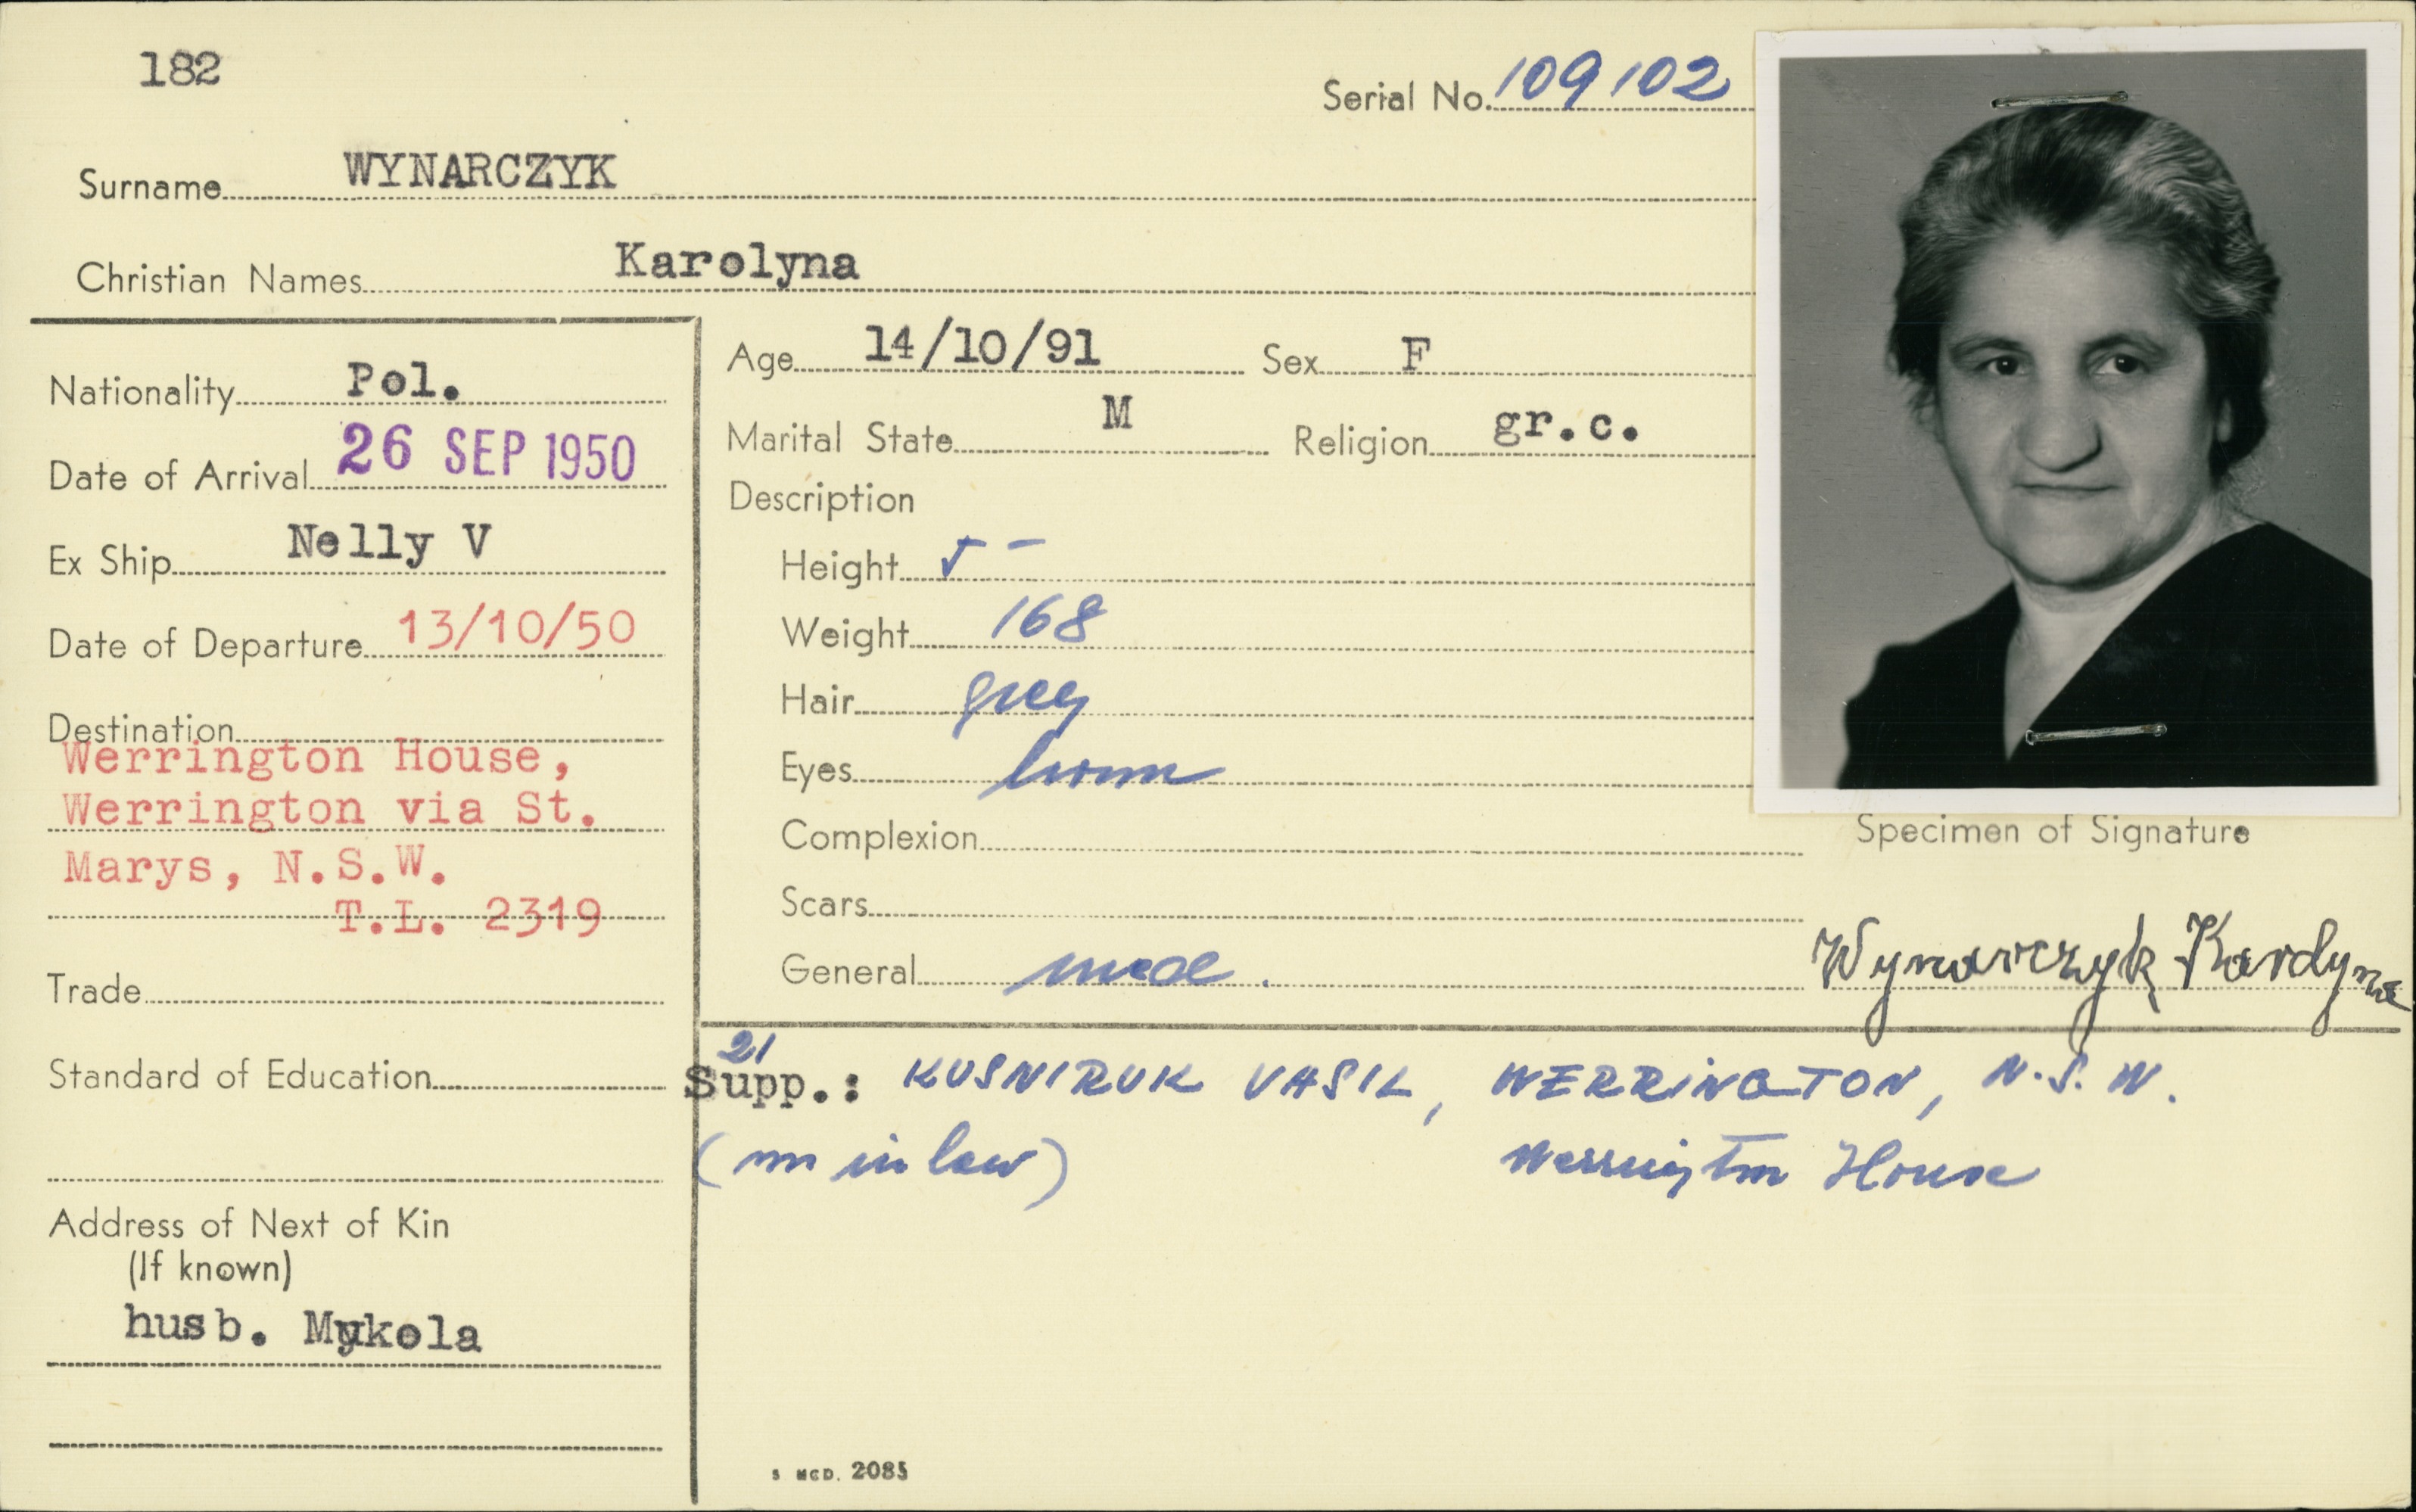 182
Serial No. 109102
Surname WYNARCZYK
Christian Names Karolyna
Nationality Pol.
Date of Arrival 26 SEP 1950
Ex Ship Nelly V
Date of Departure 13/10/50
Destination
Werrington House,
Werrington via St.
Marys, N.S.W.
T.L. 2319
Trade
Standard of Education
Address of Next of Kin
(If known)
husb. Mykola
Age 14/10/91 Sex F
Marital State M Religion gr.c.
Description
Height 5 -
Weight 168
Hair grey
Eyes brown
Complexion
Scars
General
Specimen of Signature
Wynarczyk Karolyna
21
Supp.: KUSNIRUK VASIL, WERRINGTON, N.S.W.
(son in law) Werrington House
S MCD. 2085